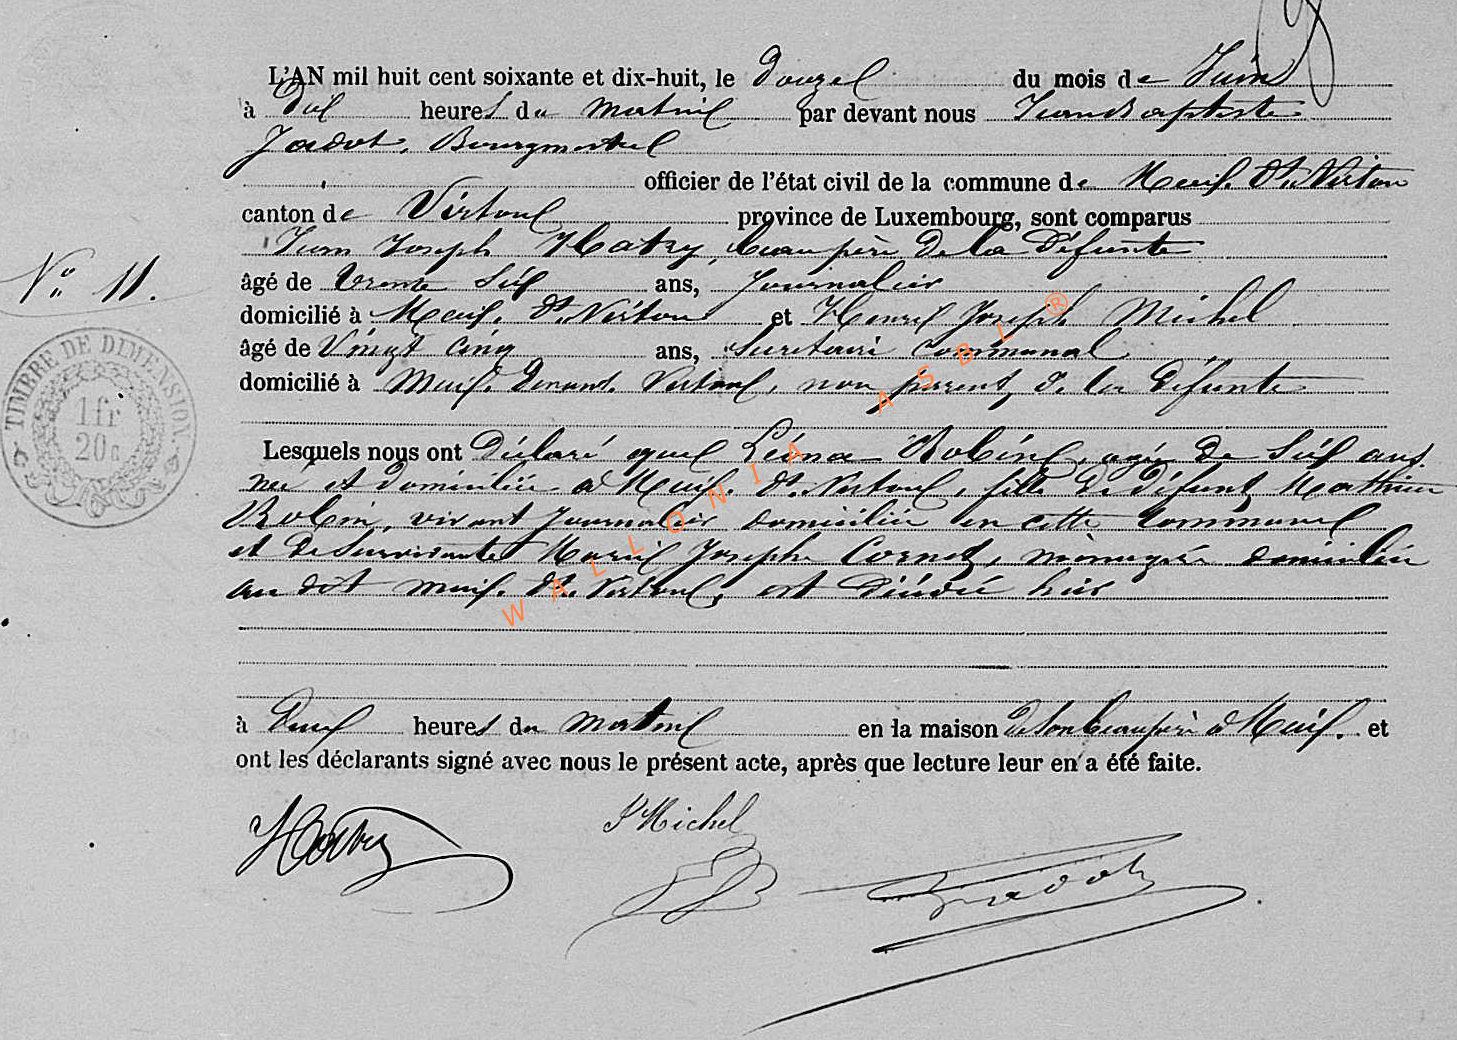 L'AN mil huit cent soixante et dix-huit, le douze du mois de Juin
à dix heures du matin par devant nous Jean Baptiste
Jadot, Bourgmestre
officier de l'état civil de la commune de Meix dt Virton
canton de Virton province de Luxembourg, sont comparus
Jean Joseph Habry, beaupère de la défunte
N° 11.
âgé de trente six ans, Journalier
domicilié à Meix dt Virton et Henri Joseph Michel
âgé de vingt cinq ans, Secrétaire communal
domicilié à Meix devant Virton, non parent de la défunte
TIMBRE DE DIMENSION
1fr
20c
Lesquels nous ont déclaré que Léona Robin, agée de six ans
née et domiciliée à Meix dt Virton, fille de défunt Mathieu
Robin, vivant Journalier domicilié en cette commune
et de survivante Marie Joseph Cornet, ménagère domiciliée
au dit Meix dt Virton, est décédée hier
à deux heures du matin en la maison de son beaupère à Meix. et
ont les déclarants signé avec nous le présent acte, après que lecture leur en a été faite.
Habry Michel Jadot
WALLONIA ASBL ®